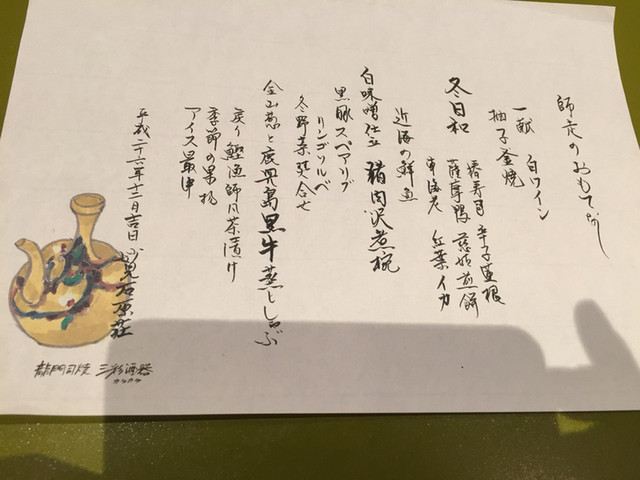 師走のおもてなし
一献 白ワイン
柚子釜焼
冬日和
椿寿司 辛子蓮根
薩摩揚 慈姑煎餅
車海老 紅葉イカ
近海の鮮魚
白味噌仕立 猪肉沢煮椀
黒豚スペアリブ
リンゴソルベ
冬野菜炊合せ
金山葱と鹿児島黒牛蒸ししゃぶ
戻り鰹漁師風茶漬け
季節の果物
アイス最中
平成二十六年十二月吉日 妙見石原荘
龍門司焼 三彩酒器
カラカラ